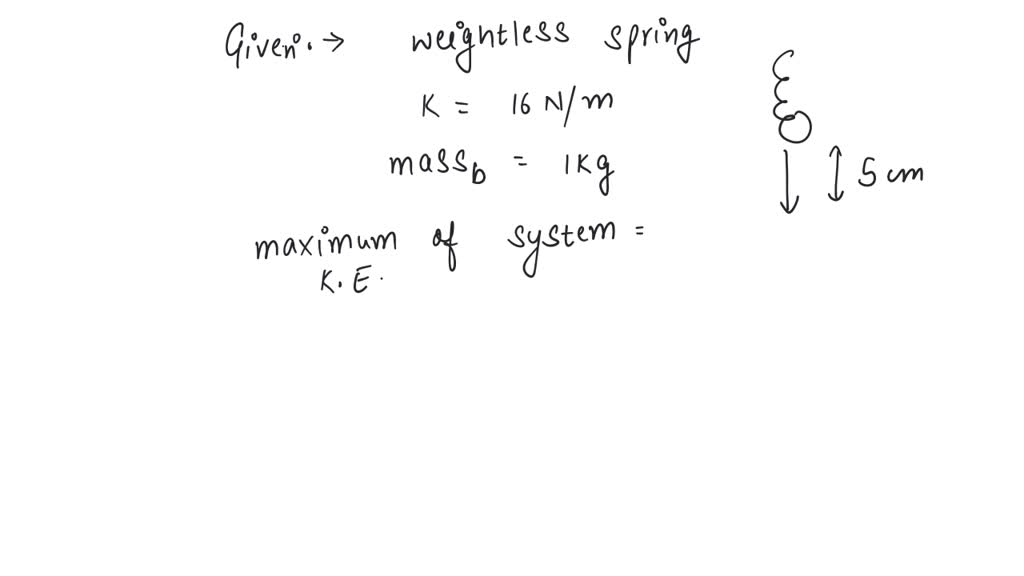 Given. → weightless spring
K = 16 N/m
mass_b = 1Kg
5 cm
maximum of system =
K.E.